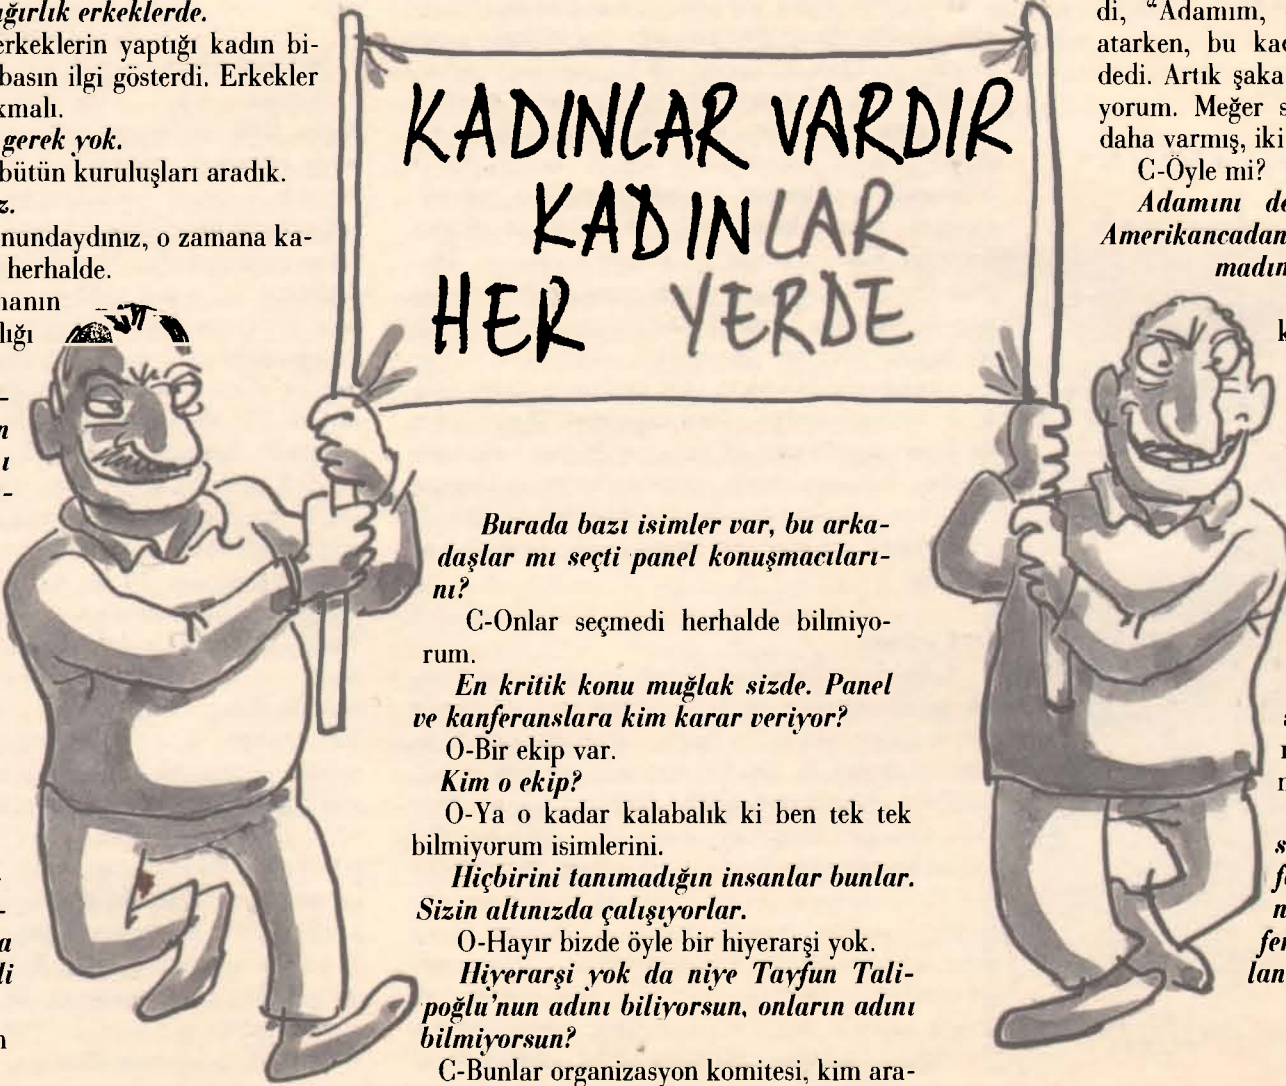 ağırlık erkeklerde.
erkeklerin yaptığı kadın bi-
basın ilgi gösterdi. Erkekler
kmalı.
gerek yok.
bütün kuruluşları aradık.
z.
nundaydınız, o zamana ka-
herhalde.
manın
lığı
–
n
ı
-
-
a
li
n
KADINLAR VARDIR
KADINLAR
HER YERDE
Burada bazı isimler var, bu arka-
daşlar mı seçti panel konuşmacıları-
nı?
C-Onlar seçmedi herhalde bilmiyo-
rum.
En kritik konu muğlak sizde. Panel
ve kanferanslara kim karar veriyor?
O-Bir ekip var.
Kim o ekip?
O-Ya o kadar kalabalık ki ben tek tek
bilmiyorum isimlerini.
Hiçbirini tanımadığın insanlar bunlar.
Sizin altınızda çalışıyorlar.
O-Hayır bizde öyle bir hiyerarşi yok.
Hiyerarşi yok da niye Tayfun Tali-
poğlu'nun adını biliyorsun, onların adını
bilmiyorsun?
C-Bunlar organizasyon komitesi, kim ara-
di, “Adamım,
atarken, bu ka
dedi. Artık şaka
yorum. Meğer s
daha varmış, iki
C-Öyle mi?
Adamını de
Amerikancadan
madın
k
s
f
n
fer
lan